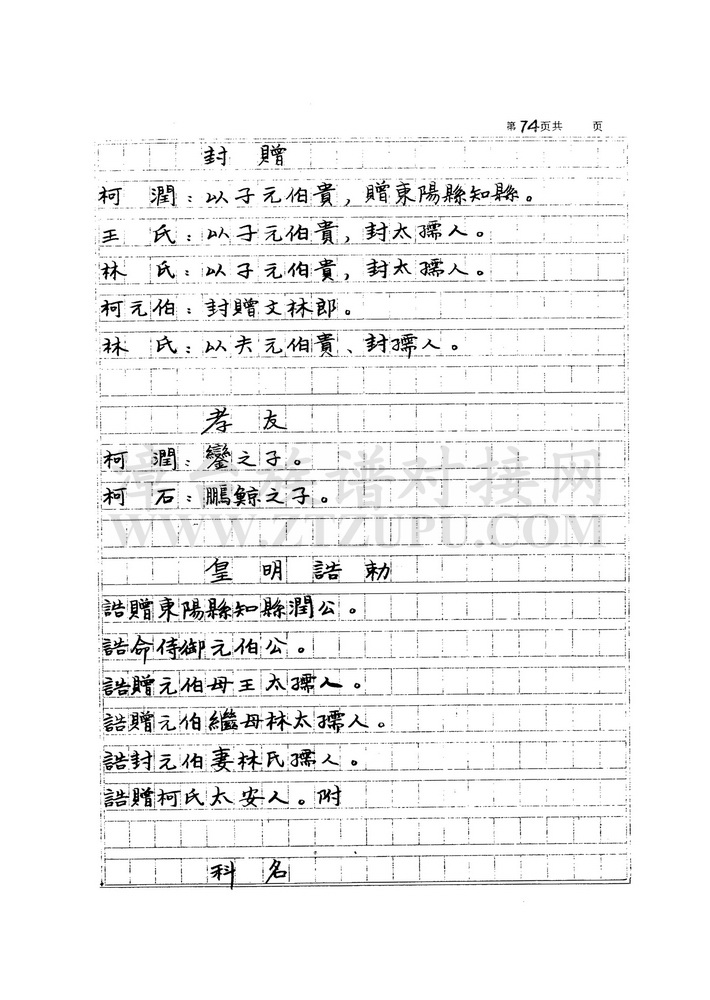 第74页共 页
封贈
柯潤：以子元伯貴，贈東陽縣知縣。
王氏：以子元伯貴，封太孺人。
林氏：以子元伯貴，封太孺人。
柯元伯：封贈文林郎。
林氏：以夫元伯貴、封孺人。
孝友
柯潤：鑾之子。
柯石：鵬鯨之子。
漳台族谱对接网
WWW.ZTZUPU.COM
皇明誥勅
誥贈東陽縣知縣潤公。
誥命侍御元伯公。
誥贈元伯母王太孺人。
誥贈元伯繼母林太孺人。
誥封元伯妻林氏孺人。
誥贈柯氏太安人。附
科名